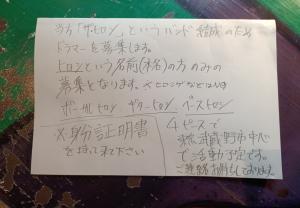 「ザ・ヒロシ」というバンド結成のため
ドラマーを募集します。
ヒロシという名前(本名)の方のみの
募集となります。
ボーカルヒロシ ギターヒロシ ベースヒロシ
※身分証明書
を持って来て下さい
4ピースで
武蔵野市中心
で活動予定です。
ご連絡お待ちしております